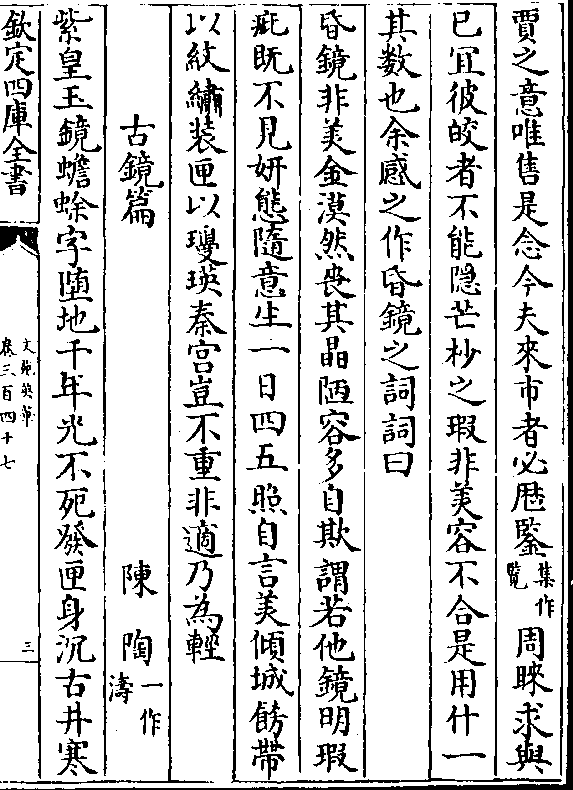 賈之意唯售是念今夫來市者必歴鑒集作覽周睞求與
已宜彼皎者不能隠芒杪之瑕非美容不合是用什一
其数也余感之作昏鏡之詞詞曰
昏鏡非美金漠然喪其晶陋容多自欺謂若他鏡明瑕
疵既不見妍態隨意生一日四五照自言美傾城餙帶
以紋繡装匣以瓊瑛秦宮豈不重非適乃為輕
古鏡篇 陳陶一作濤
紫皇玉鏡蟾蜍字堕地千年光不死發匣身沉古井寒
欽定四庫全書
文苑英華
卷三百四十七
三